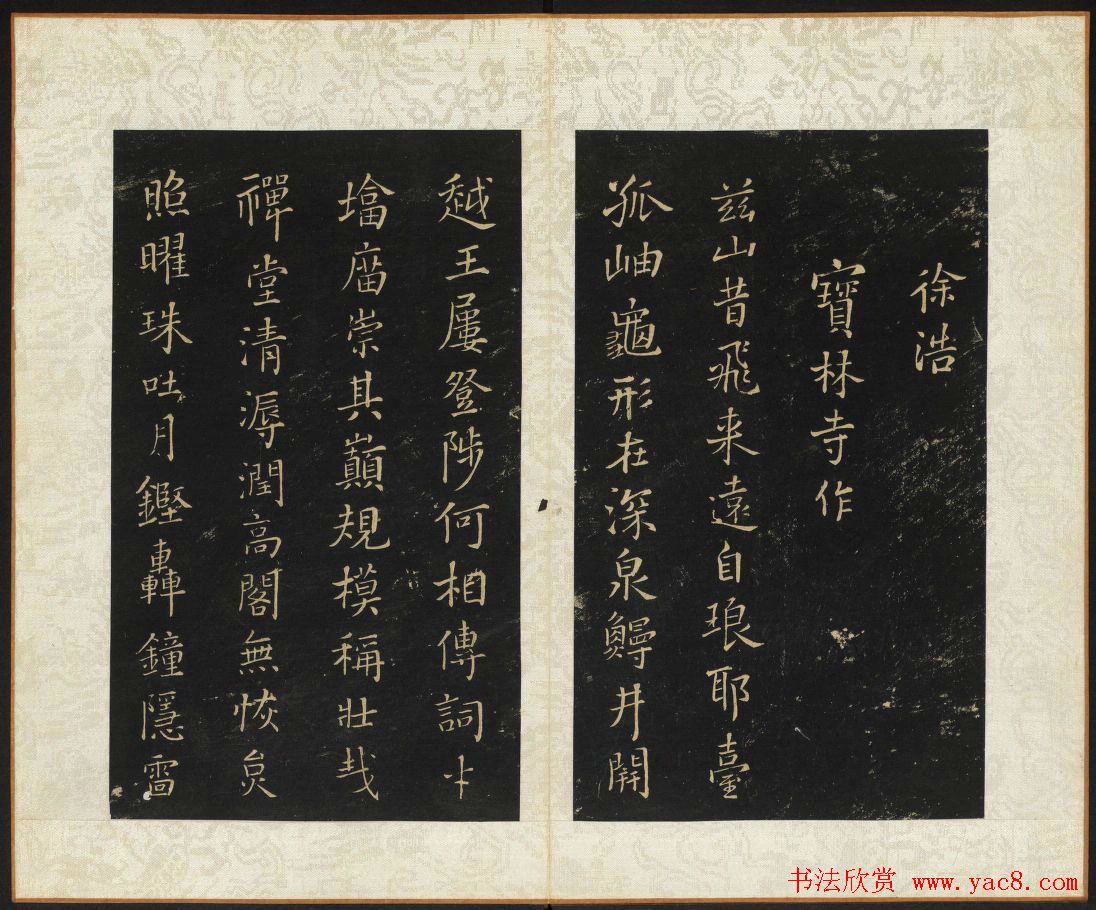 徐浩
寶林寺作
茲山昔飛来遠自琅耶臺
孤岫龜形在深泉鰻井開
越王屢登陟何相傳詞才
墖庿崇其巔規模稱壯哉
禪堂清溽潤高閣無恢炱
照曜珠吐月鏗轟鐘隱雷
书法欣赏 www.yac8.com